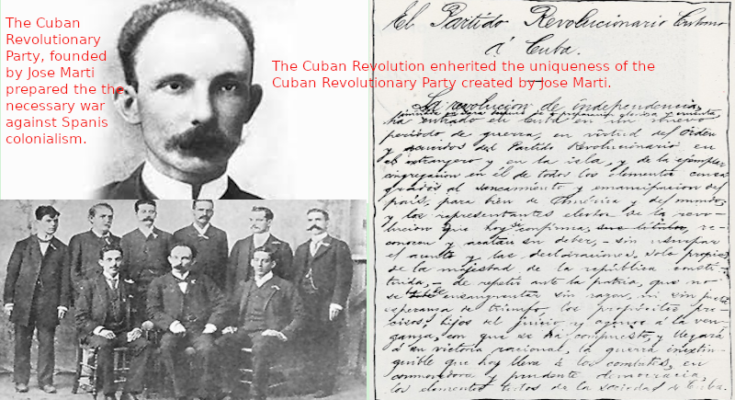 The Cuban
Revolutionary
Party, founded
by Jose Marti
prepared the the
necessary war
against Spanis
colonialism.
The Cuban Revolution enherited the uniqueness of the
Cuban Revolutionary Party created by Jose Marti.
El Partido Revolucionario Cubano
á Cuba.
La revolucion de independencia,
ha entrado en Cuba en un nuevo
período de guerra, en virtud del orden
y acuerdos del Partido Revolucionario en
el extranjero y en la isla, y de la ejemplar
congregacion en él de todos los elementos
al saneamiento y emancipacion del
pais, para bien de América y del mundo;
y los representantes electos de la revo-
lucion que hoy se confirma, re-
conocen y acatan su deber, - sin usurpar
el acento y las declaraciones solo propias
de la majestad de la república consti-
tuida, - de repetir ante la patria, que no
se ensangrentar sin razon, ni sin
esperanza de triunfo, los propósitos pre-
cisos, hijos del juicio y agenos á la ven-
ganza, con que se ha compuesto, y llegará
á su victoria racional, la guerra inextin-
guible que hoy lleva á los combates, en
conmovedora y prudente democracia,
los elementos todos de la sociedad de Cuba.